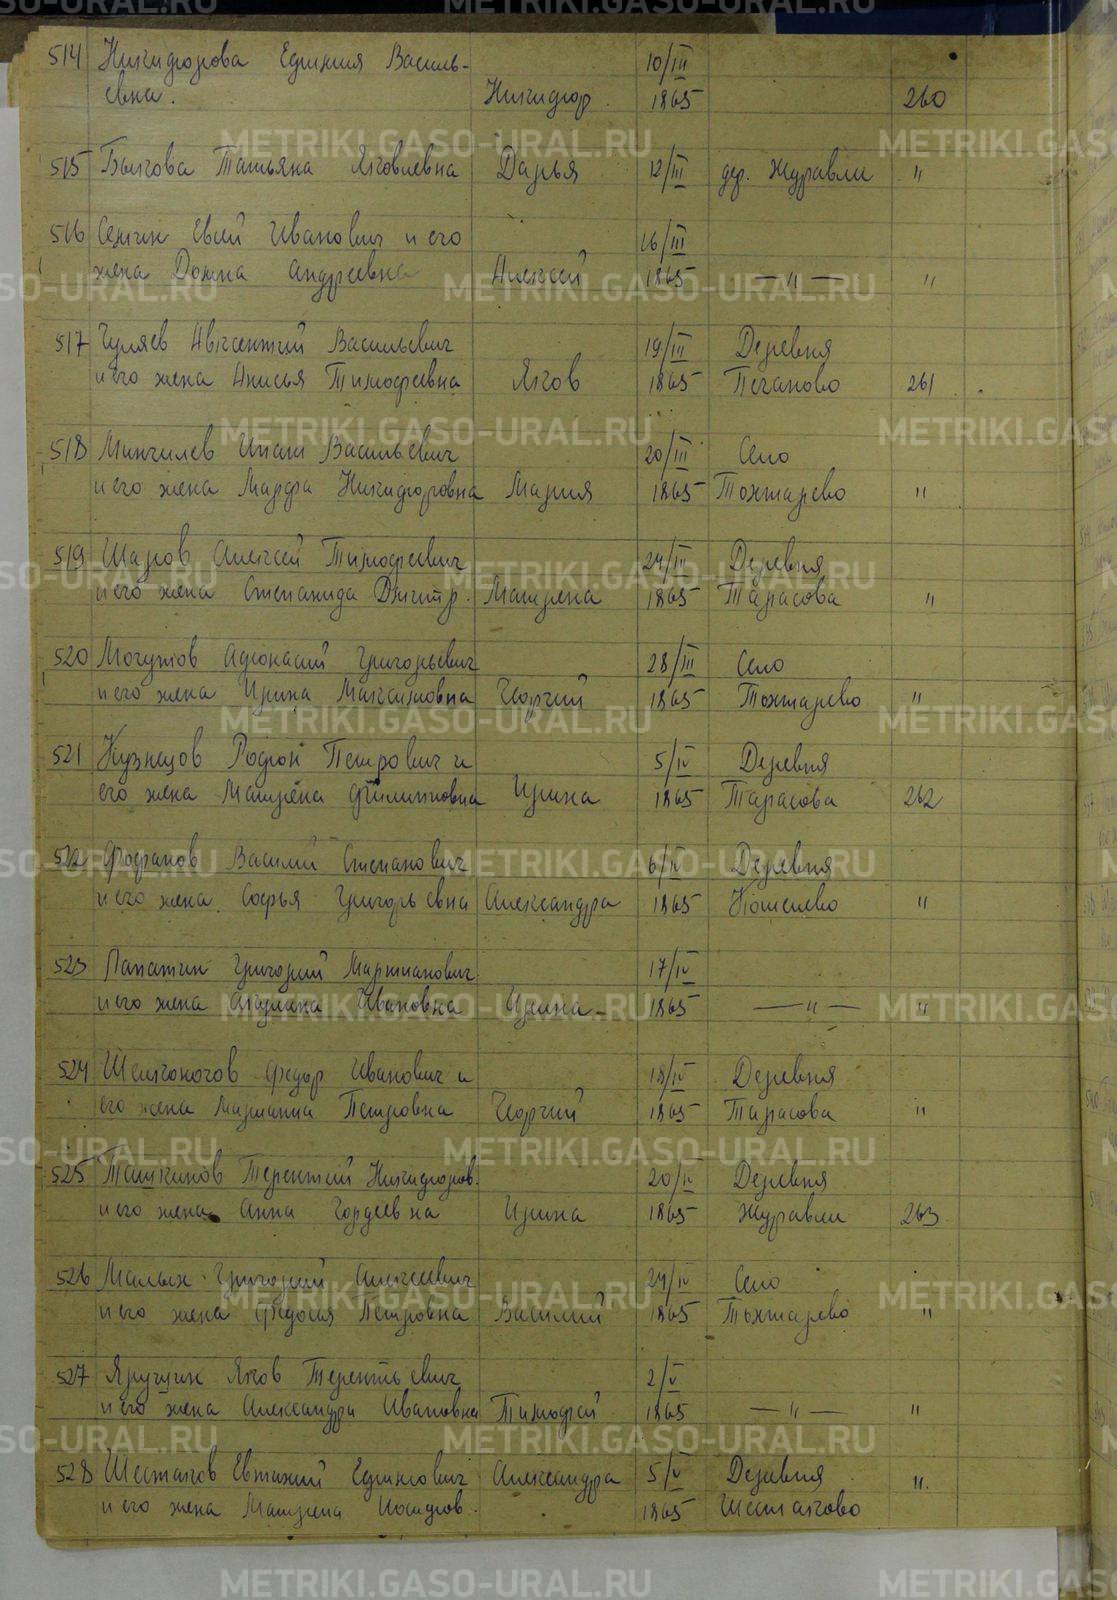 514 Никифорова Ефимия Василь- 10/III
евна. Никифор. 1865 260
515 Быкова Татьяна Яковлевна Дарья 12/III дер. Журавли "
516 Семин Евсей Иванович и его 16/III
жена Домна Андреевна Алексей 1865 — " — "
517 Гуляев Авксентий Васильевич 19/III Деревня
и его жена Анисья Тимофеевна Яков 1865 Печаново 261
518 Васильевич 20/III Село
и его жена Марфа Никифоровна Мария 1865 Тохтарево "
519 Шаров Алексей Тимофеевич 24/III Деревня
и его жена Степанида Дмитр. Матрена 1865 Тарасова "
520 Афонасий Григорьевич 28/III Село
и его жена Ирина Максимовна Георгий 1865 Тохтарево "
521 Кузнецов Родион Петрович и 5/IV Деревня
его жена Матрёна Филипповна Ирина 1865 Тарасова 262
522 Фофанов Василий Степанович 6/IV Деревня
и его жена Софья Григорьевна Александра 1865 Кошелево "
523 Лапатин Григорий Мартианович 17/IV
и его жена Акулина Ивановна Ирина 1865 — " — "
524 Шелконогов Федор Иванович и 18/IV Деревня
его жена Марианна Петровна Георгий 1865 Тарасова "
525 Ташкинов Терентий Никифоров. 20/IV Деревня
и его жена Анна Гордеевна Ирина 1865 Журавли 263
526 Малых Григорий Алексеевич 24/IV Село
и его жена Федосия Петровна Василий 1865 Тохтарево "
527 Яков Терентьевич 2/V
и его жена Александра Ивановна Тимофей 1865 — " — "
528 Шестаков Евтихий Ефимович Александра 5/V Деревня "
и его жена Матрена 1865 Шестаково
METRIKI.GASO-URAL.RU